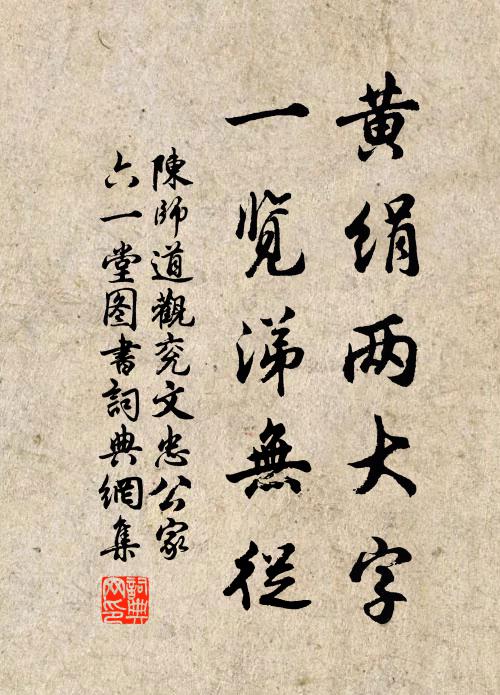 黄绢两大字
一览涕無從
陳師道觀兖文忠公家
六一堂图書詞典網集
詞典网印